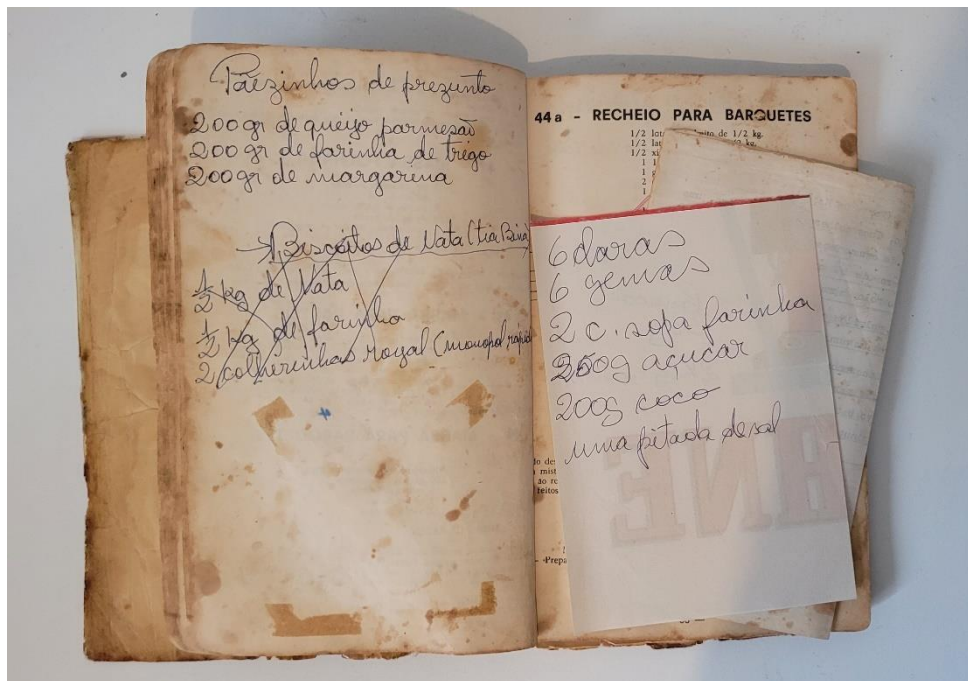 Pãezinhos de prezunto
200gr de queijo parmesão
200 gr de farinha de trigo
200gr de margarina
→ Biscoitos de Nata (tia Bina)
1/2 kg de Nata
1/2 kg de farinha
2 colherinhas royal (monopol rapid
44 a - RECHEIO PARA BARQUETES
1/2 de 1/2 kg.
1/2 kg.
1/2
6 claras
6 gemas
2 c. sopa farinha
250g açucar
200g coco
uma pitada de sal